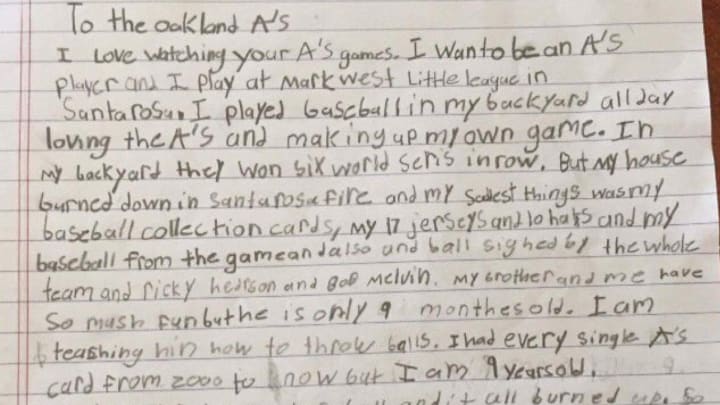 To the oakland A's
I Love watching your A's games. I wanto be an A's
player and I play at Mark West Little league in
Santarosa. I played baseball in my backyard all day
loving the A's and making up my own game. In
my backyard they won six world seris in row. But my house
burned down in Santarosa fire and my sadest things was my
baseball collection cards, my 17 jerseys and 10 hats and my
baseball from the game and also and ball sighed by the whole
team and ricky hedrson and Bob Melvin. my brother and me have
So mush fun but he is only 9 monthes old. I am
teashing hin how to throw balls. I had every single A's
card from 2000 to now but I am 9 years old.
and it all burned up. So